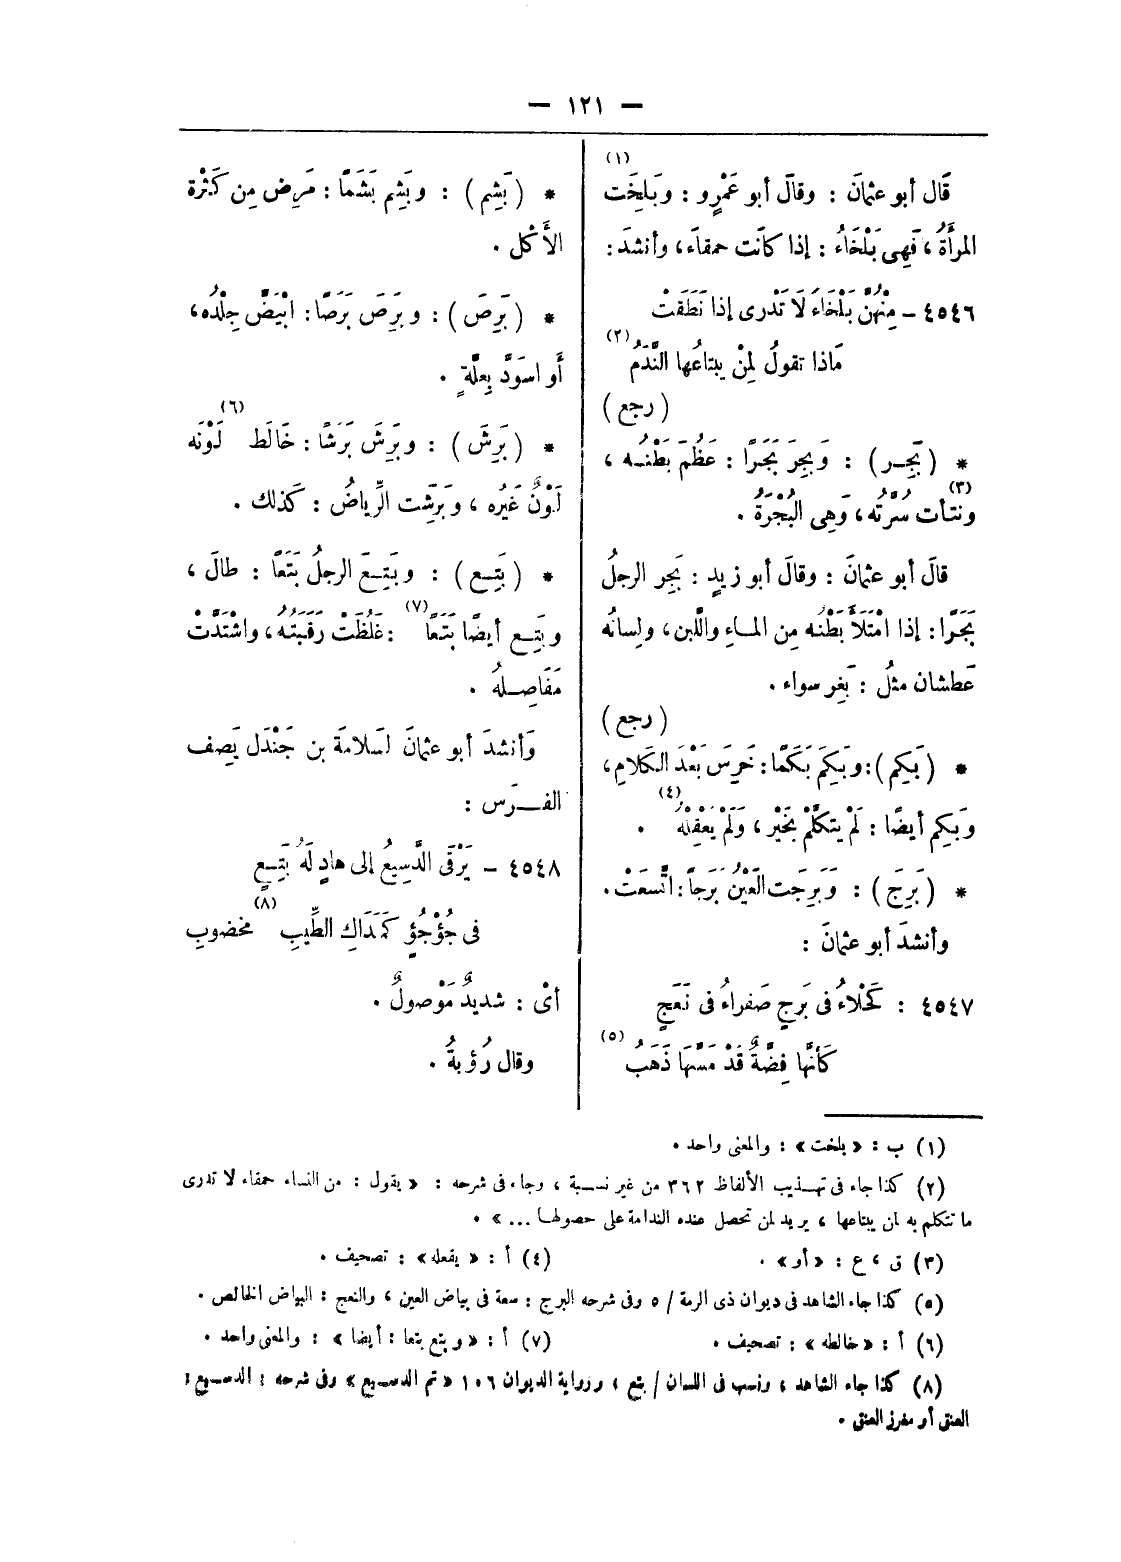 — ١٢١ —
قَال أبو عثمانَ : وقالَ أبو عَمْرٍو : وبَلِخَت (١)
المرأَةُ ، فَهِى بَلْخَاءُ : إذا كانَت حمقاءَ ، وأنشدَ :
٤٥٤٦ – مِنْهُنَّ بَلْخَاءُ لَا تَدْرِى إذا نَطَقَتْ
مَاذا تقولُ لِمنْ يبتاعُها النَّدَمُ (٢)
( رجع )
* ( بَجِر ) : وَبَجِرَ بَجَرًا : عَظُمَ بَطْنُه ،
ونتأت (٣) سُرَّتُه ، وَهِى البُجْرَةُ .
قالَ أبو عثمانَ : وقالَ أبو زيدٍ : بَجِر الرجلُ
بَجَرًا : إذا امْتَلأَ بَطْنُه مِن الماءِ واللَّبن ، ولِسانُه
عَطشان مثلُ : بَغِر سواء .
( رجع )
* ( بَكِم ) : وبَكِمَ بَكَمًا : خَرِسَ بَعْدَ الكَلامِ ،
وَبَكِم أيضًا : لَمْ يتكلَّمْ بخَيْر ، وَلَمْ يَعْقِلْهُ (٤) .
* ( بَرِجَ ) : وَبَرِجَت العَيْنُ بَرَجاً : اتَّسعَتْ .
وأنشدَ أبو عثمانَ :
٤٥٤٧ : كَحْلاءُ فى بَرجٍ صَفراءُ فى نَعَجٍ
كَأنَّها فِضَّةٌ قَدْ مَسَّهَا ذَهَبُ (٥)
* ( بَشِم ) : وبَشِم بَشَمًا : مَرِض مِن كَثْرة
الأَكْل .
* ( بَرِصَ ) : وبَرِصَ بَرَصًا : ابْيَضَّ جِلْدُه ،
أَو اسوَدَّ بِعلَّةٍ .
* ( بَرِشَ ) : وبَرِشَ بَرَشًا : خَالَط (٦) لَوْنَه
لَوْنٌ غَيْرُه ، وبَرِشَت الرِّياضُ : كَذلك .
* ( بَتِع ) : وبَتِعَ الرجلُ بَتَعًا : طالَ ،
وبَتِع أيضًا بَتَعًا (٧) : غَلُظَتْ رقَبَتُه ، واشْتَدَّتْ
مَفَاصِلهُ .
وَأنشدَ أبو عثمانَ لسَلامَة بن جَنْدَل يَصِف
الفرَس :
٤٥٤٨ – يَرْقَى الدَّسِيعُ إلى هادٍ لَهُ بَتِعٍ
فى جُؤْجُؤٍ كَمَدَاكِ الطِّيبِ (٨) مخضوبِ
أىْ : شديدٌ مَوْصولٌ .
وقال رُؤبةُ .
(١) ب : « بلخت » : والمعنى واحد .
(٢) كذا جاء فى تهذيب الألفاظ ٣٦٢ من غير نسبة ، وجاء فى شرحه : « يقول : من النساء حمقاء لا تدرى
ما تتكلم به لمن يبتاعها ، يريد لمن تحصل عنده الندامة على حصولها ... » .
(٣) ق ، ع : « أو » .
(٤) أ : « يفعله » : تصحيف .
(٥) كذا جاء الشاهد فى ديوان ذى الرمة / ٥ وفى شرحه البرج : سعة فى بياض العين ، والنعج : البياض الخالص .
(٦) أ : « خالطه » : تصحيف .
(٧) أ : « وبتع بتعا : أيضا » : والمعنى واحد .
(٨) كذا جاء الشاهد ، ونسب فى اللسان / بتع ، ورواية الديوان ١٠٦ « تم الدسيع » وفى شرحه : الدسيع :
العنق أو مغرز العنق .